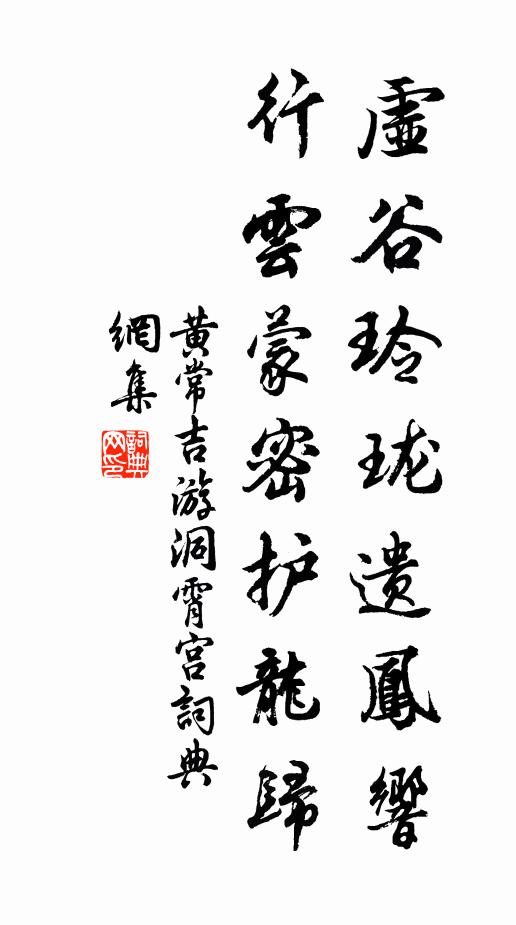 虛谷玲珑遺鳳響
行雲蒙密护龍歸
黄常吉游洞霄宫詞典
網集
詞典网印